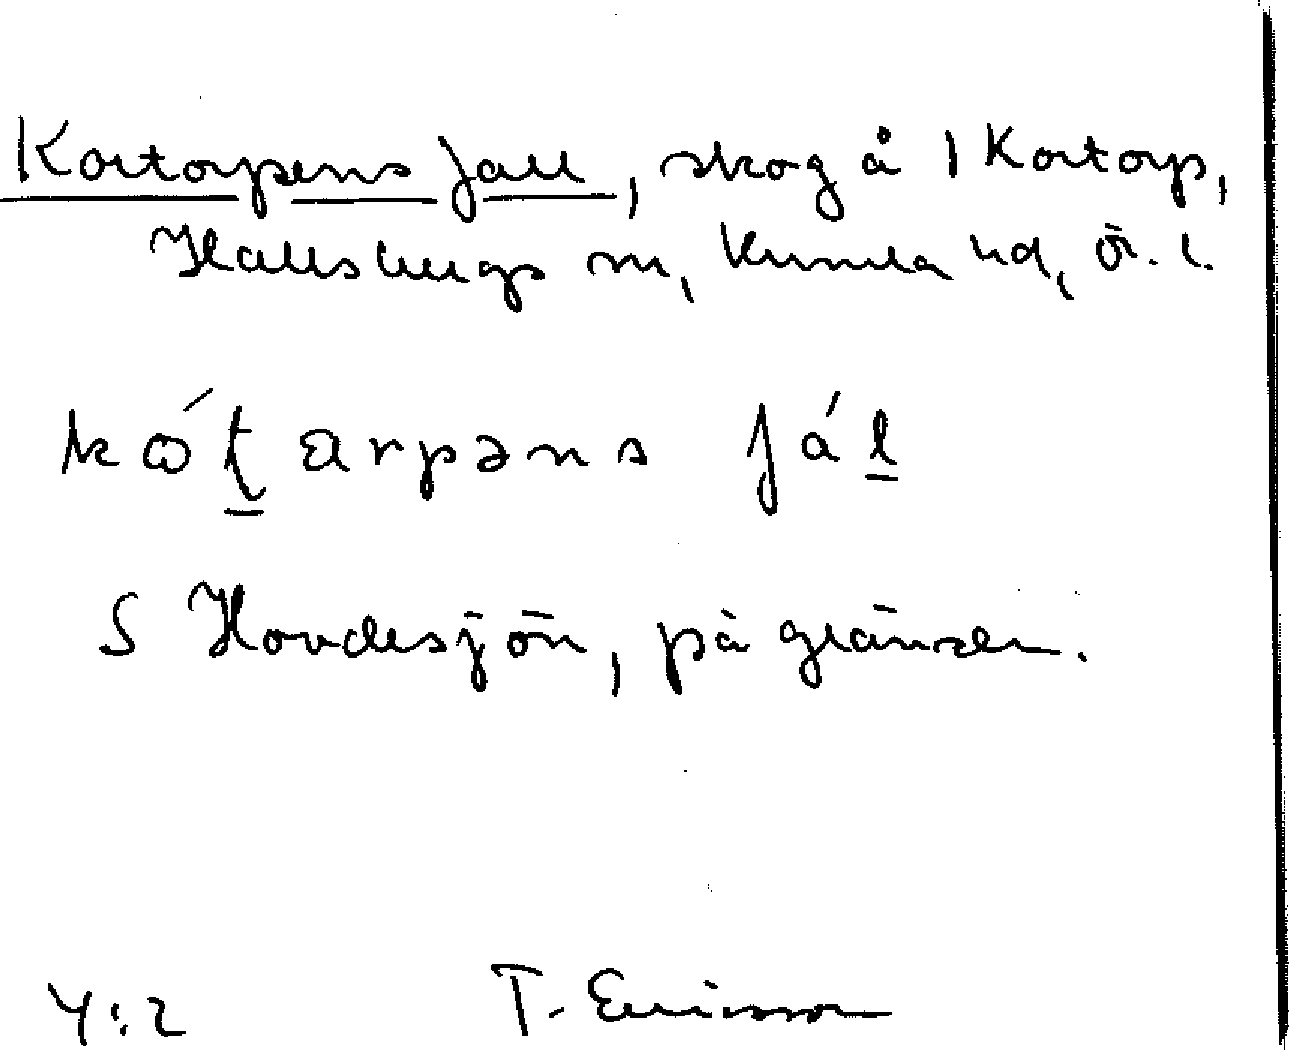 Kortorpens fall, skog å 1 Kortorp,
Hallsbergs sn, Kumla hd, Ör. l.
kǿʈarpəns fál
S Hovdesjön, på gränsen.
4:2 T. Ericsson